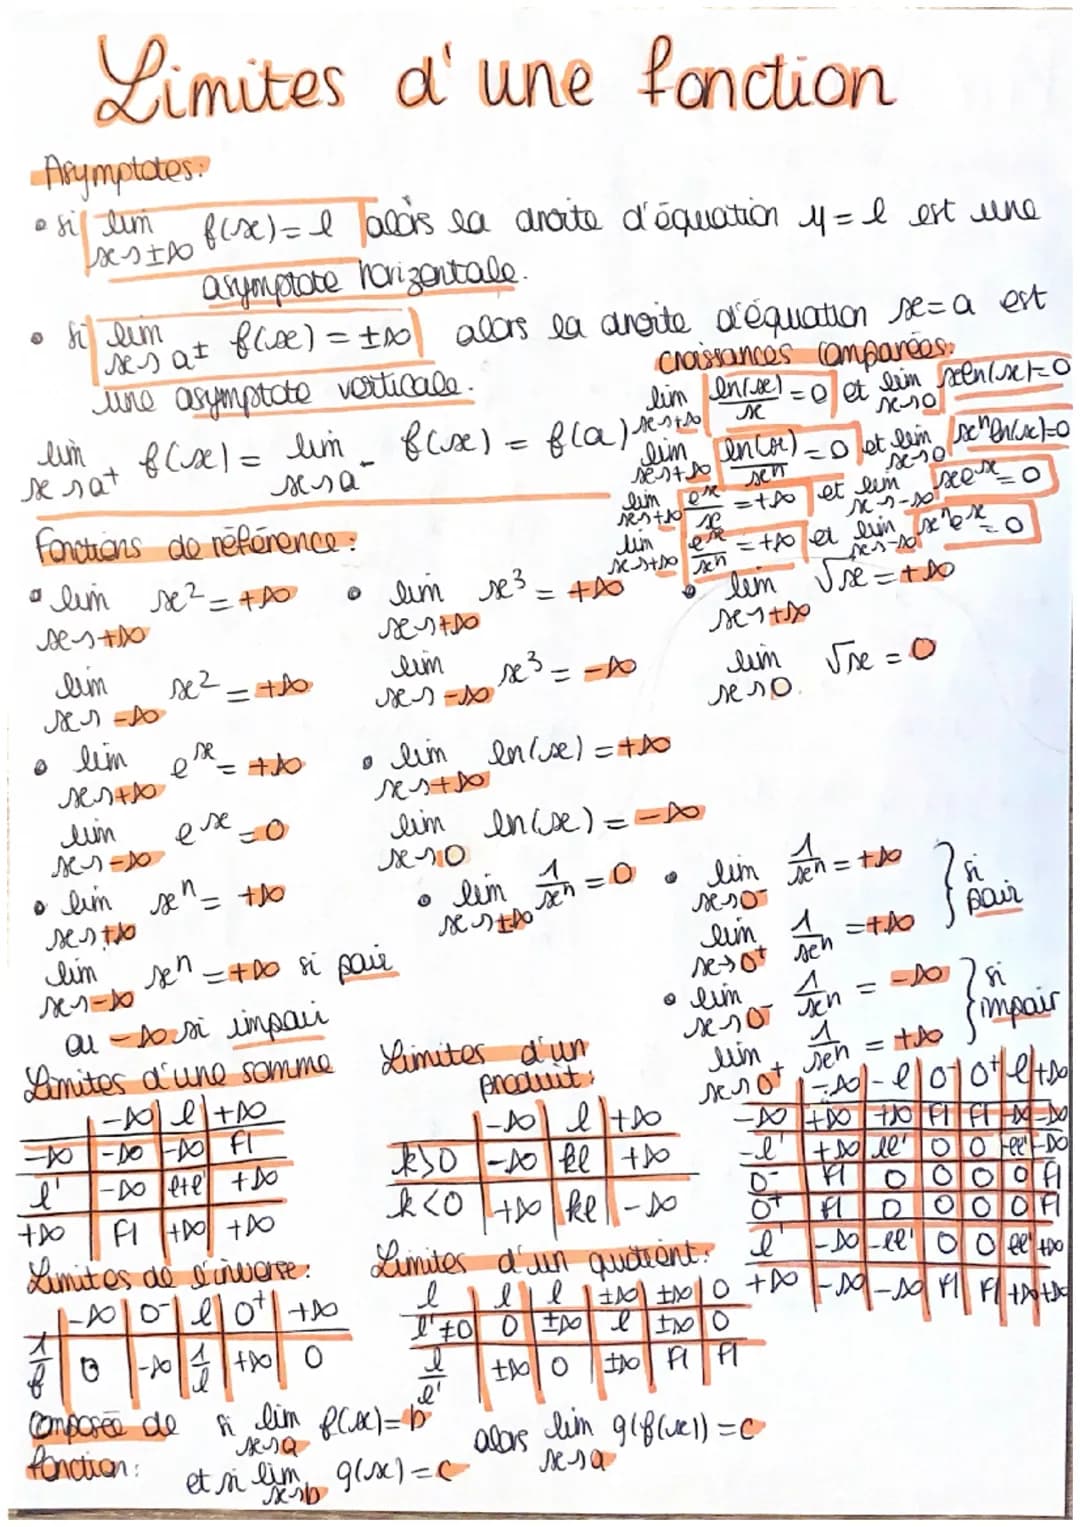 Limites d'une fonction
Asymptotes:
• si lim x→±∞ f(x) = l alors la droite d'équation y = l est une
asymptote horizontale.
• si lim x→a± f(x) = ±∞ alors la droite d'équation x = a est
une asymptote verticale.
lim x→a+ f(x) = lim x→a- f(x) = f(a)
croissances comparées:
lim x→+∞ ln(x)/x = 0 et lim x→0 xln(x) = 0
lim x→+∞ ln(x)/xⁿ = 0 et lim x→0 xⁿln(x) = 0
lim x→+∞ eˣ/x = +∞ et lim x→-∞ xeˣ = 0
lim x→+∞ eˣ/xⁿ = +∞ et lim x→-∞ xⁿeˣ = 0
Fonctions de référence:
• lim x→+∞ x² = +∞
lim x→-∞ x² = +∞
• lim x→+∞ x³ = +∞
lim x→-∞ x³ = -∞
• lim x→+∞ √x = +∞
lim x→0 √x = 0
• lim x→+∞ eˣ = +∞
lim x→-∞ eˣ = 0
• lim x→+∞ ln(x) = +∞
lim x→0 ln(x) = -∞
• lim x→+∞ xⁿ = +∞
lim x→-∞ xⁿ = +∞ si pair
ou -∞ si impair
• lim x→±∞ 1/xⁿ = 0
• lim x→0- 1/xⁿ = +∞
lim x→0+ 1/xⁿ = +∞
} si pair
• lim x→0- 1/xⁿ = -∞
lim x→0+ 1/xⁿ = +∞
} si impair
Limites d'une somme
-∞ l +∞
-∞ -∞ -∞ FI
l' -∞ l+l' +∞
+∞ FI +∞ +∞
Limites d'un produit:
-∞ l +∞
k>0 -∞ kl +∞
k<0 +∞ kl -∞
-∞ -l 0- 0+ l +∞
-∞ +∞ +∞ FI FI -∞ -∞
-l' +∞ ll' 0 0 -ll' -∞
0- FI 0 0 0 0 FI
0+ FI 0 0 0 0 FI
l' -∞ -ll' 0 0 ll' +∞
+∞ -∞ -∞ FI FI +∞ +∞
Limites de l'inverse:
-∞ 0- l 0+ +∞
1/f 0 -∞ 1/l +∞ 0
Limites d'un quotient:
l l l ±∞ ±∞ 0
l'≠0 0 ±∞ l ±∞ 0
l/l' ±∞ 0 ±∞ FI FI
Composée de fonction:
si lim x→a f(x) = b
et si lim x→b g(x) = c
alors lim x→a g(f(x)) = c